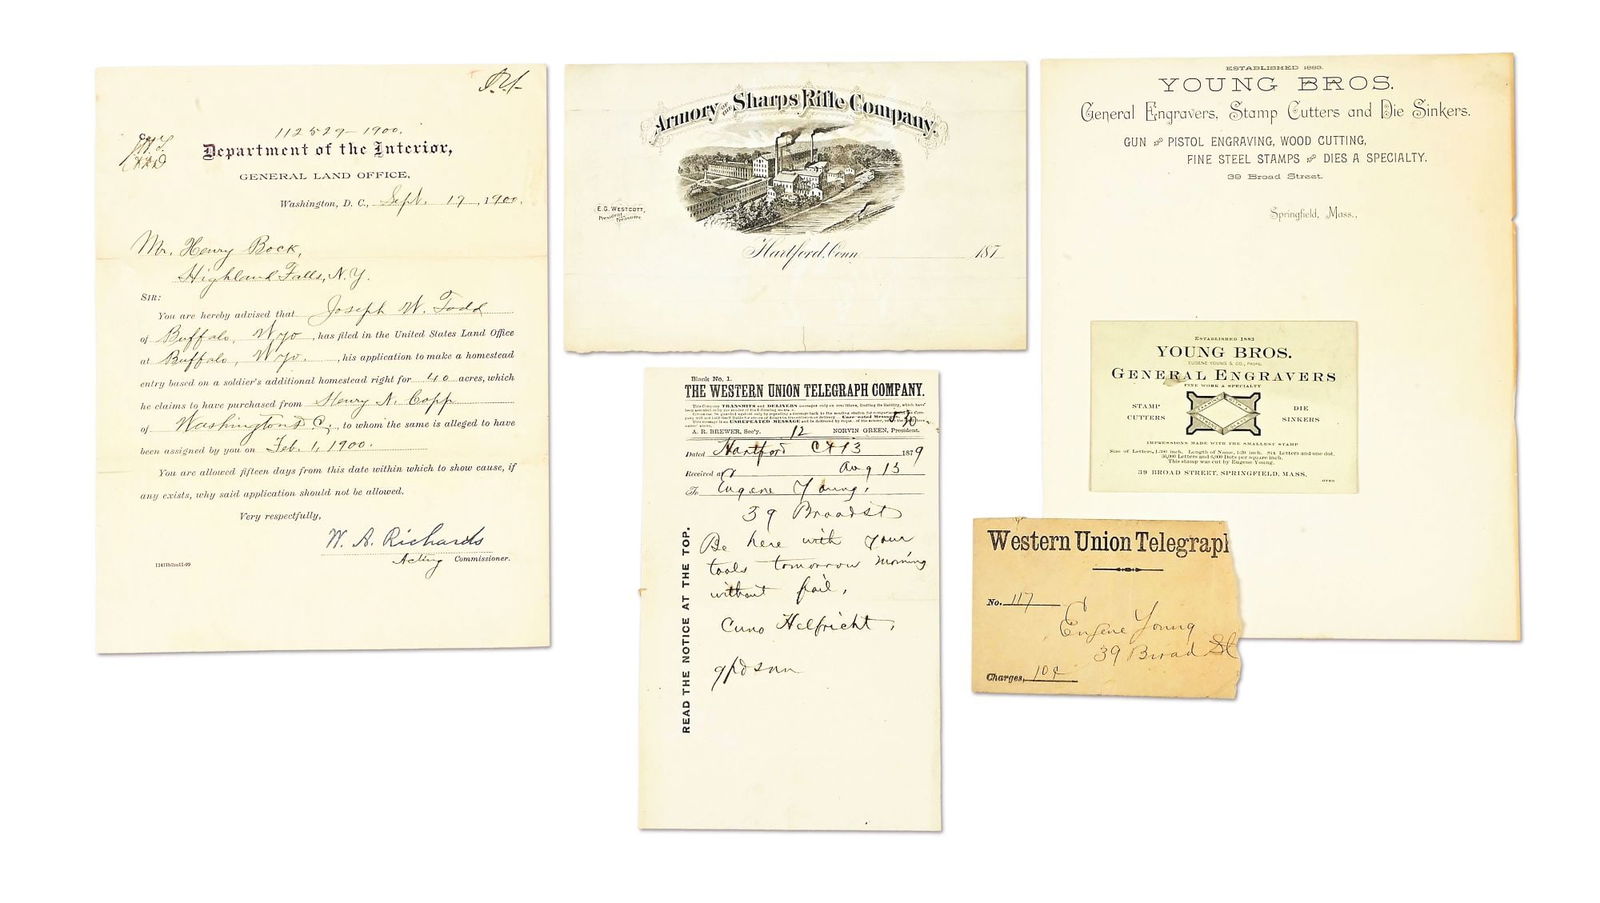 112529-1900.
Department of the Interior,
GENERAL LAND OFFICE,
Washington, D. C., Sept. 17, 1900.
Mr. Henry Bock,
Highland Falls, N.Y.
SIR:
You are hereby advised that Joseph W. Todd
of Buffalo, Wyo., has filed in the United States Land Office
at Buffalo, Wyo., his application to make a homestead
entry based on a soldier's additional homestead right for 40 acres, which
he claims to have purchased from Henry N. Copp
of Washington D.C., to whom the same is alleged to have
been assigned by you on Feb. 1, 1900.
You are allowed fifteen days from this date within which to show cause, if
any exists, why said application should not be allowed.
Very respectfully,
W. A. Richards
Acting Commissioner.
Armory OF THE Sharps Rifle Company.
E. G. WESTCOTT,
President
Hartford, Conn 187
Blank No. 1.
THE WESTERN UNION TELEGRAPH COMPANY.
This Company TRANSMITS and DELIVERS
530
A. R. BREWER, Sec'y. 12 NORVIN GREEN, President.
Dated Hartford Ct 13 1879
Received at Aug 13
To Eugene Young,
39 Broad St
Be here with your
tools tomorrow morning
without fail,
Cuno Helfricht,
READ THE NOTICE AT THE TOP.
ESTABLISHED 1883.
YOUNG BROS.
General Engravers, Stamp Cutters and Die Sinkers.
GUN AND PISTOL ENGRAVING, WOOD CUTTING,
FINE STEEL STAMPS AND DIES A SPECIALTY.
39 Broad Street.
Springfield, Mass.,
ESTABLISHED 1883
YOUNG BROS.
EUGENE YOUNG & CO., PROPS.
GENERAL ENGRAVERS
FINE WORK A SPECIALTY
STAMP CUTTERS
DIE SINKERS
IMPRESSIONS MADE WITH THE SMALLEST STAMP
This stamp was cut by Eugene Young.
39 BROAD STREET, SPRINGFIELD, MASS.
OVER
Western Union Telegraph
No. 117
Eugene Young
39 Broad St
Charges, 10¢